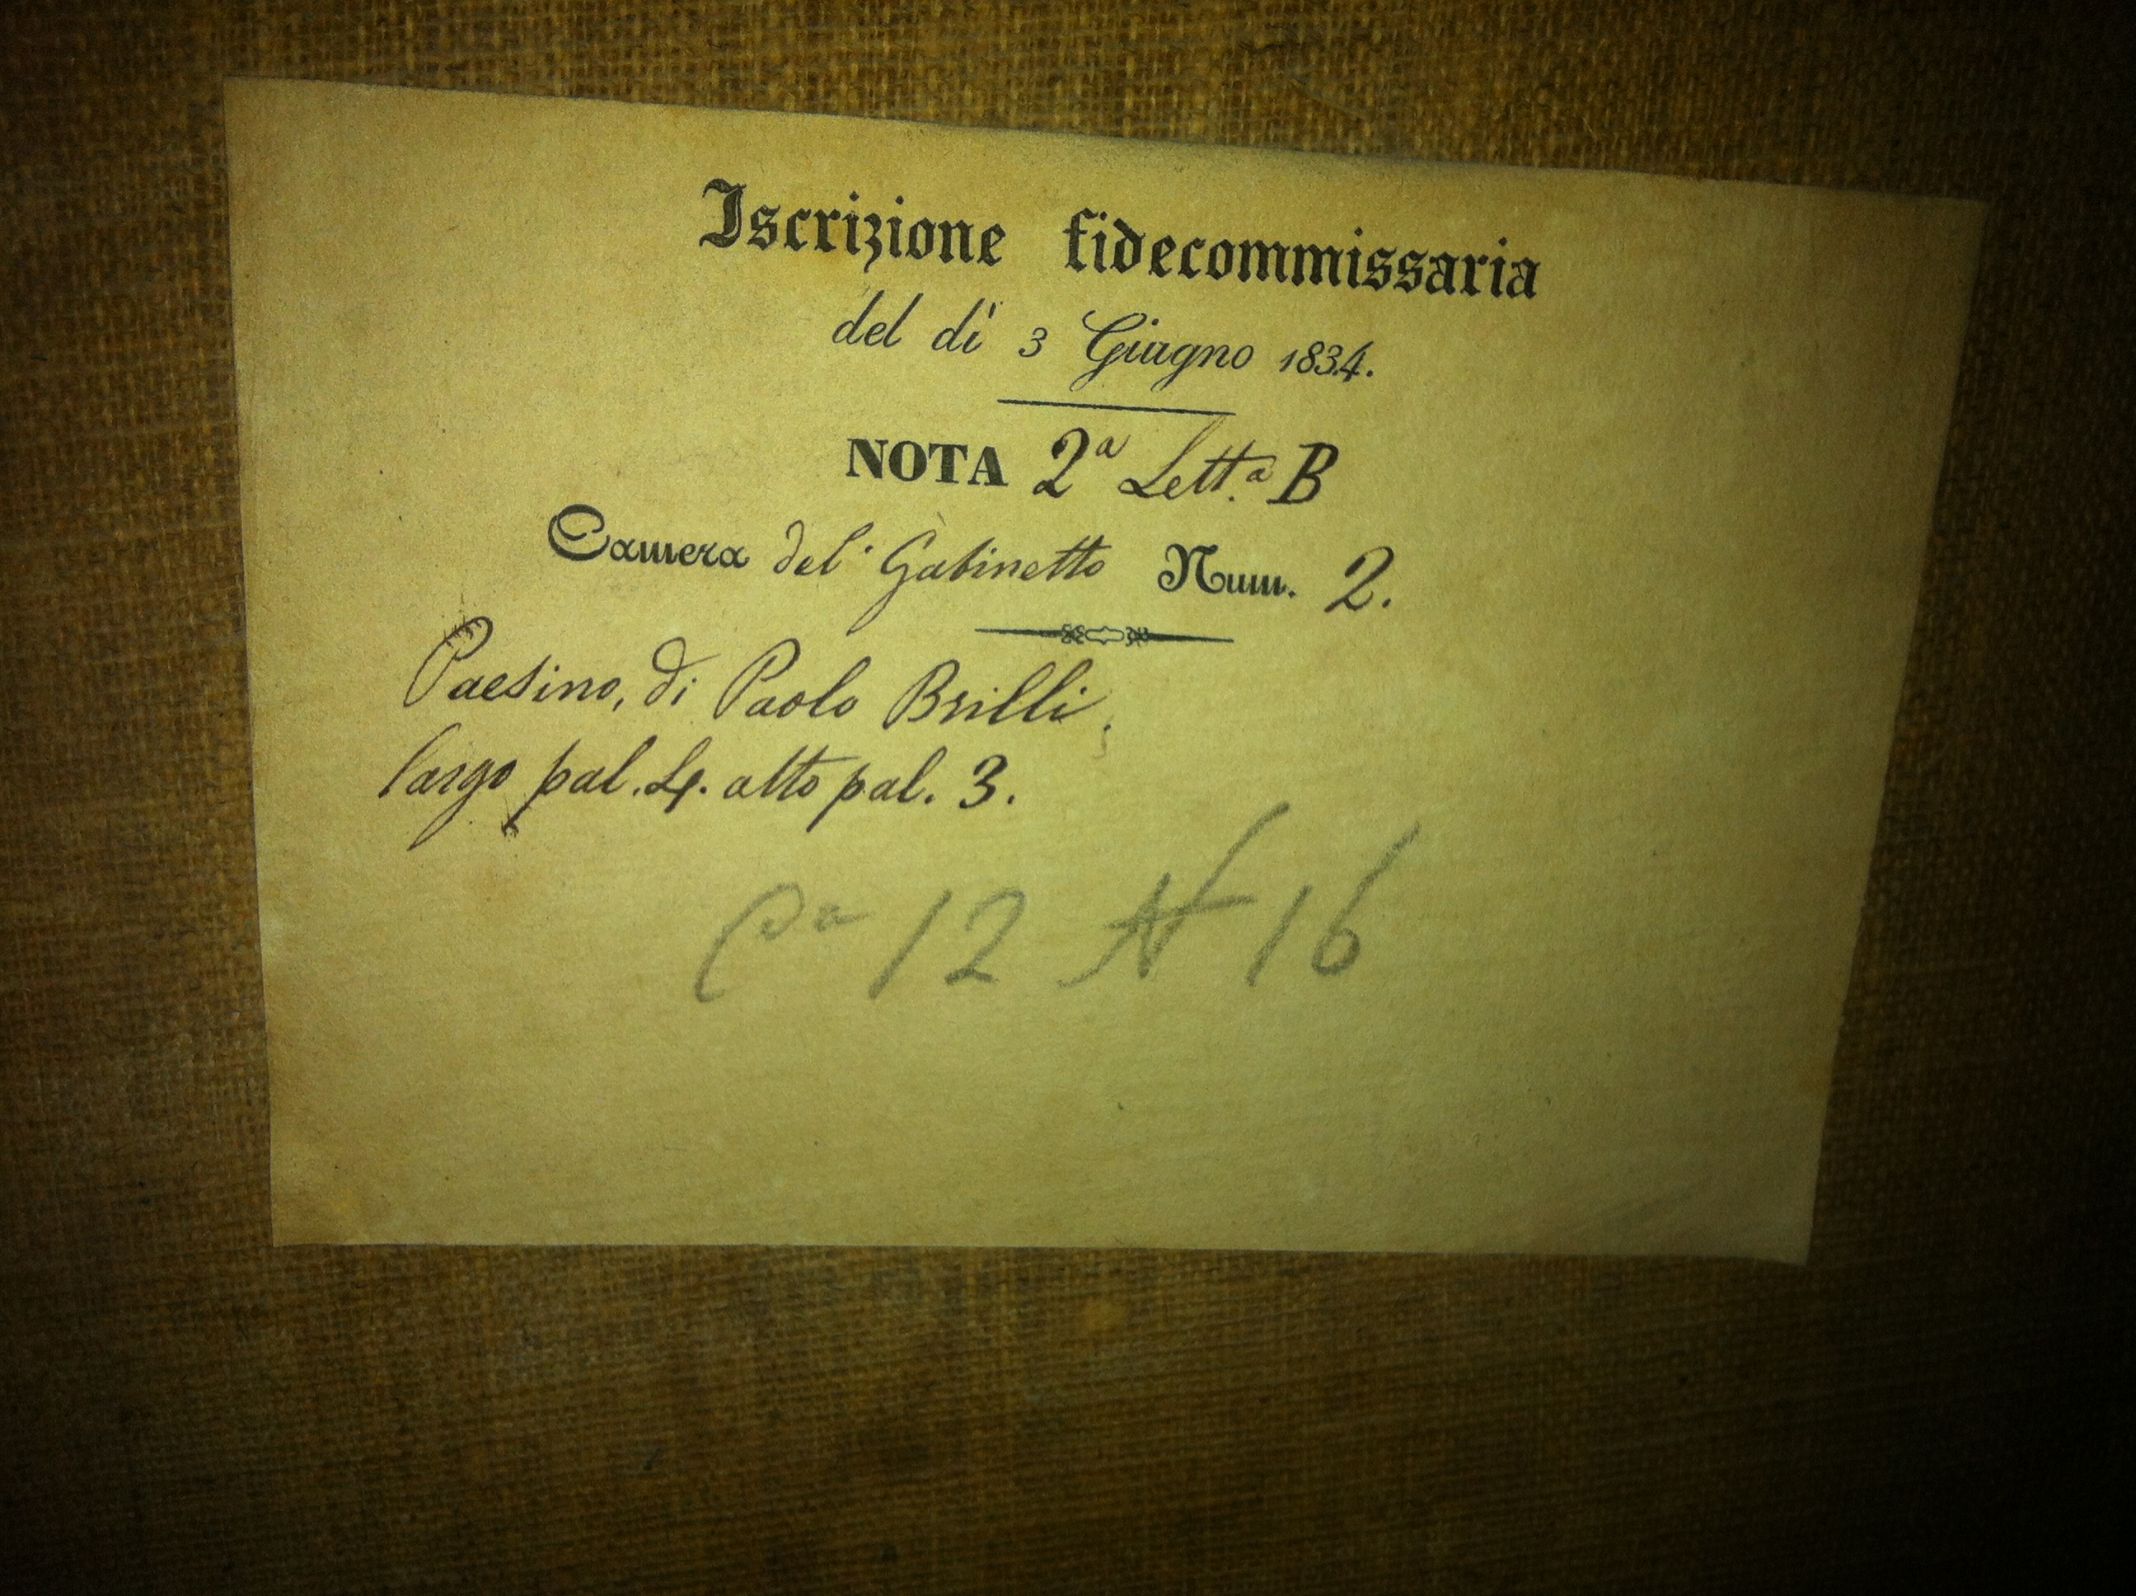 Iscrizione fidecommissaria
del dì 3 Giugno 1834.
NOTA 2ª Lett.ª B
Camera del Gabinetto Num. 2.
Paesino, di Paolo Brilli.
largo pal. 4. alto pal. 3.
Cª 12 N 16